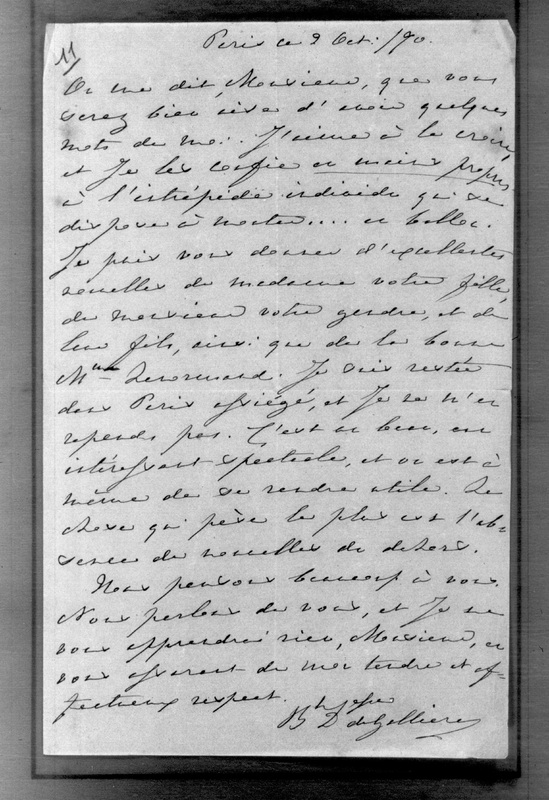 11
Paris ce 2 Oct: /70.
On me dit, Monsieur, que vous
serez bien aise d'avoir quelques
mots de moi. J'aime à le croire,
et Je les confie en mains propres
à l'intrépide individu qui se
dispose à monter.... en ballon.
Je puis vous donner d'excellentes
nouvelles de madame votre fille,
de monsieur votre gendre, et de
leur fils, ainsi que de la bonne
Mme Lenormand. Je suis restée
dans Paris assiégé, et Je ne m'en
repends pas. C'est un beau, un
intéressant spectacle, et on est à
même de se rendre utile. La
chose qui pèse le plus est l'ab-
sence de nouvelles du dehors.
Nous pensons beaucoup à vous.
Nous parlons de vous, et Je ne
vous apprendrai rien, Monsieur, en
vous assurant de mon tendre et af-
fectueux respect.